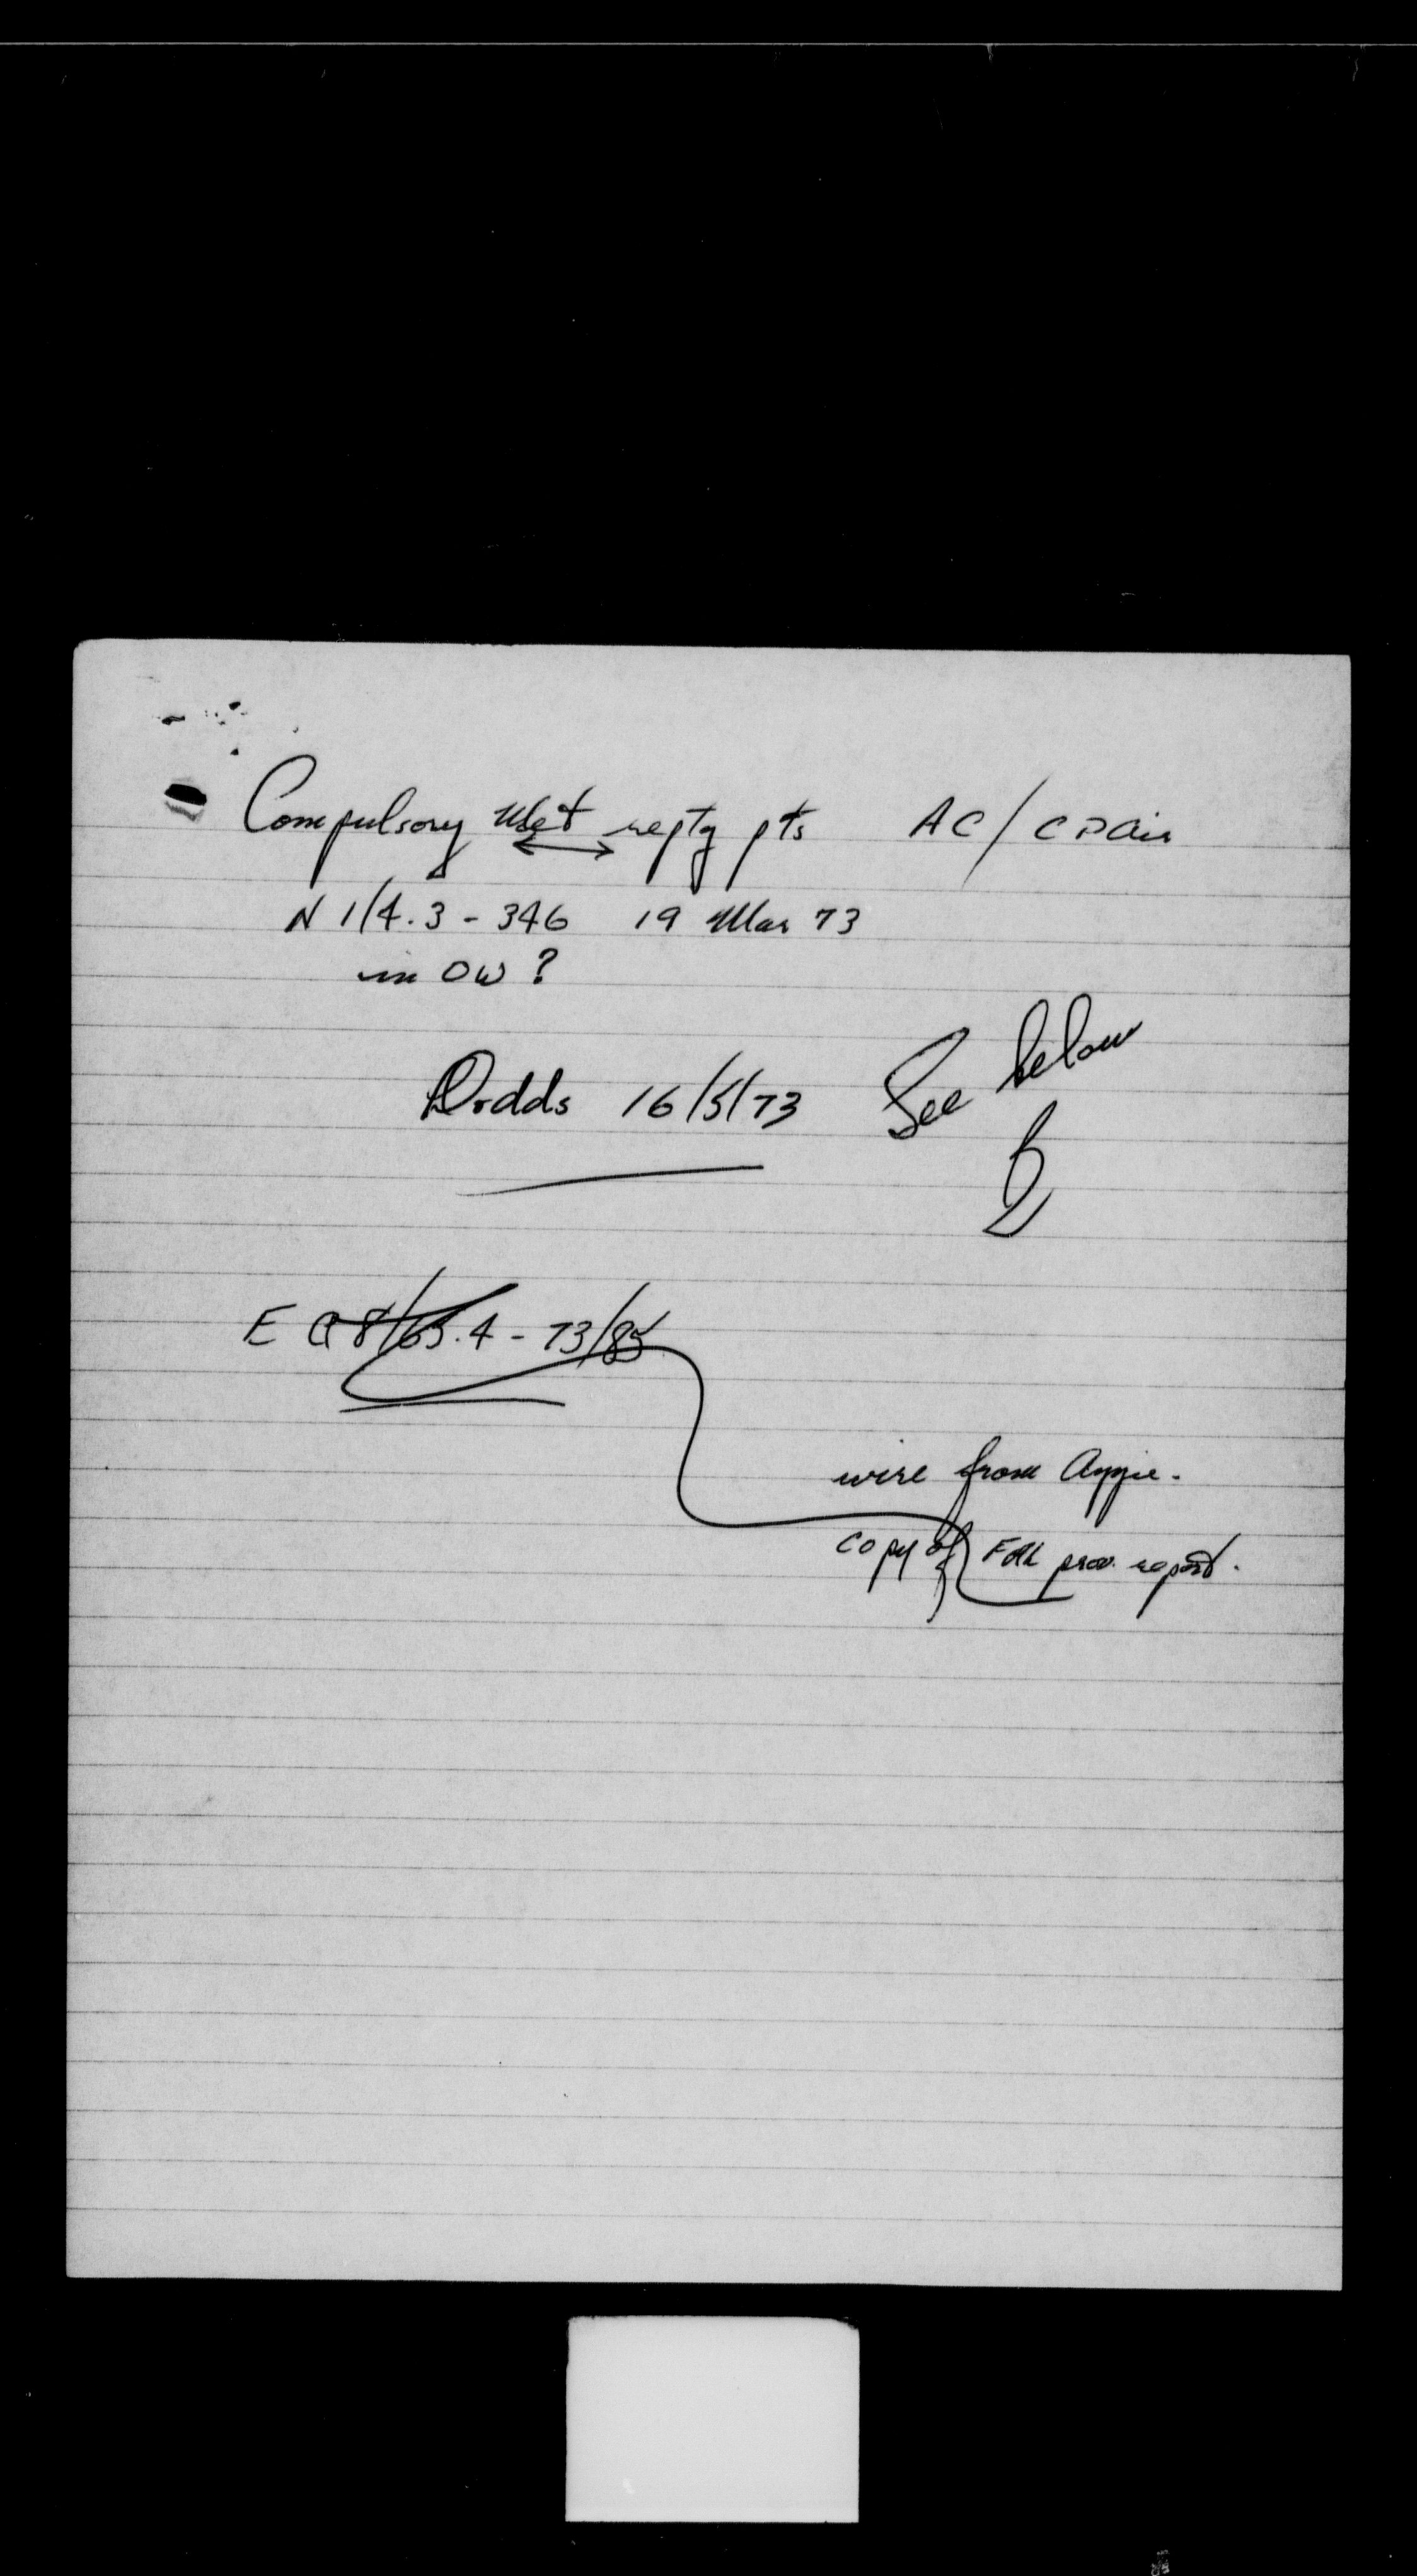 Compulsory Met reptg pts AC/CPAir
N 1/4.3 - 346 19 Mar 73
in OW ?
Dodds 16/5/73 See below
E 8/65.4 - 73/85
wire from
copy of prov. report.